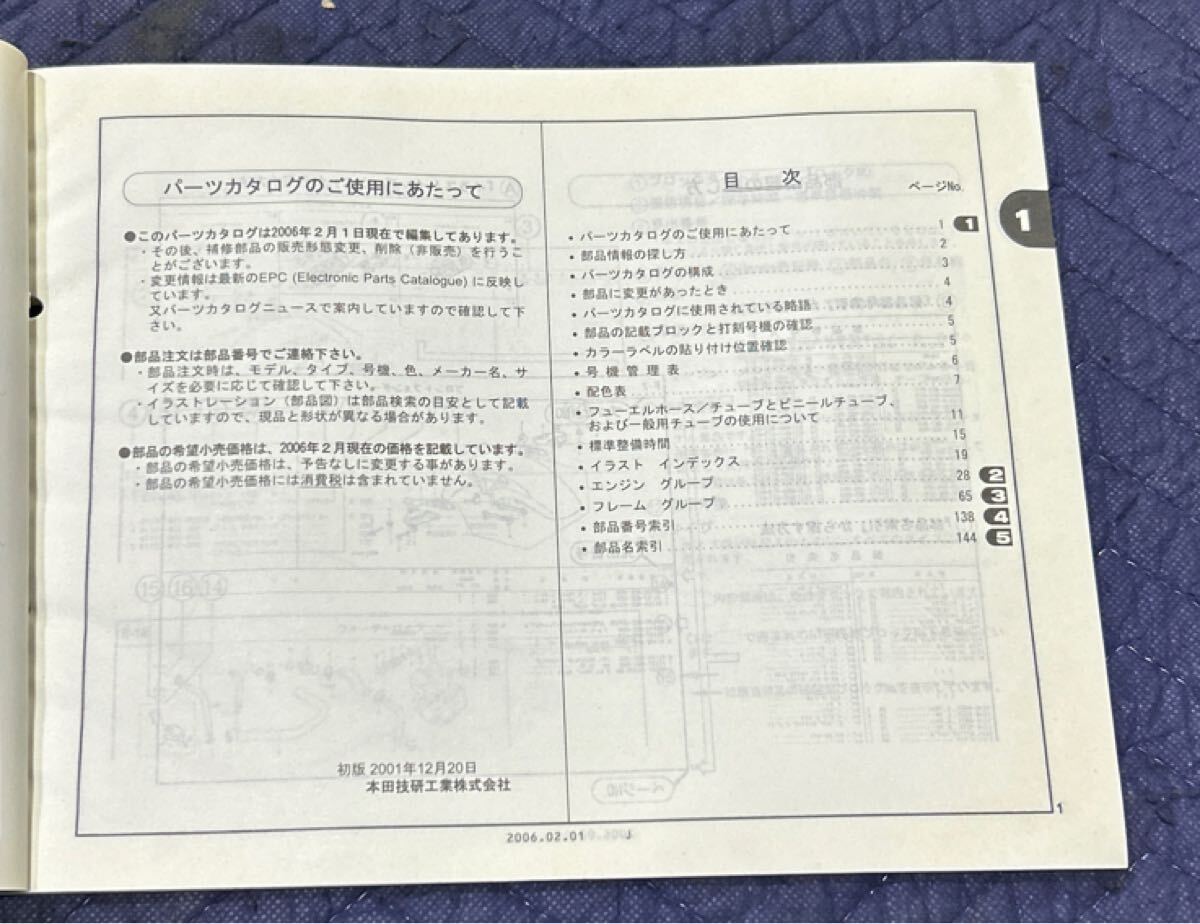 パーツカタログのご使用にあたって
●このパーツカタログは2006年2月1日現在で編集してあります。
・その後、補修部品の販売形態変更、削除（非販売）を行うこ
とがございます。
・変更情報は最新のEPC (Electronic Parts Catalogue) に反映し
ています。
又パーツカタログニュースで案内していますので確認して下
さい。
●部品注文は部品番号でご連絡下さい。
・部品注文時は、モデル、タイプ、号機、色、メーカー名、サ
イズを必要に応じて確認して下さい。
・イラストレーション（部品図）は部品検索の目安として記載
していますので、現品と形状が異なる場合があります。
●部品の希望小売価格は、2006年2月現在の価格を記載しています。
・部品の希望小売価格は、予告なしに変更する事があります。
・部品の希望小売価格には消費税は含まれていません。
初版 2001年12月20日
本田技研工業株式会社
目 次
ページNo.
・パーツカタログのご使用にあたって 1 1
・部品情報の探し方 2
・パーツカタログの構成 3
・部品に変更があったとき 4
・パーツカタログに使用されている略語 4
・部品の記載ブロックと打刻号機の確認 5
・カラーラベルの貼り付け位置確認 5
・号機管理表 6
・配色表 7
・フューエルホース／チューブとビニールチューブ、
および一般用チューブの使用について 11
・標準整備時間 15
・イラスト インデックス 19
・エンジン グループ 28 2
・フレーム グループ 65 3
・部品番号索引 138 4
・部品名索引 144 5
1
1
2006.02.01 J